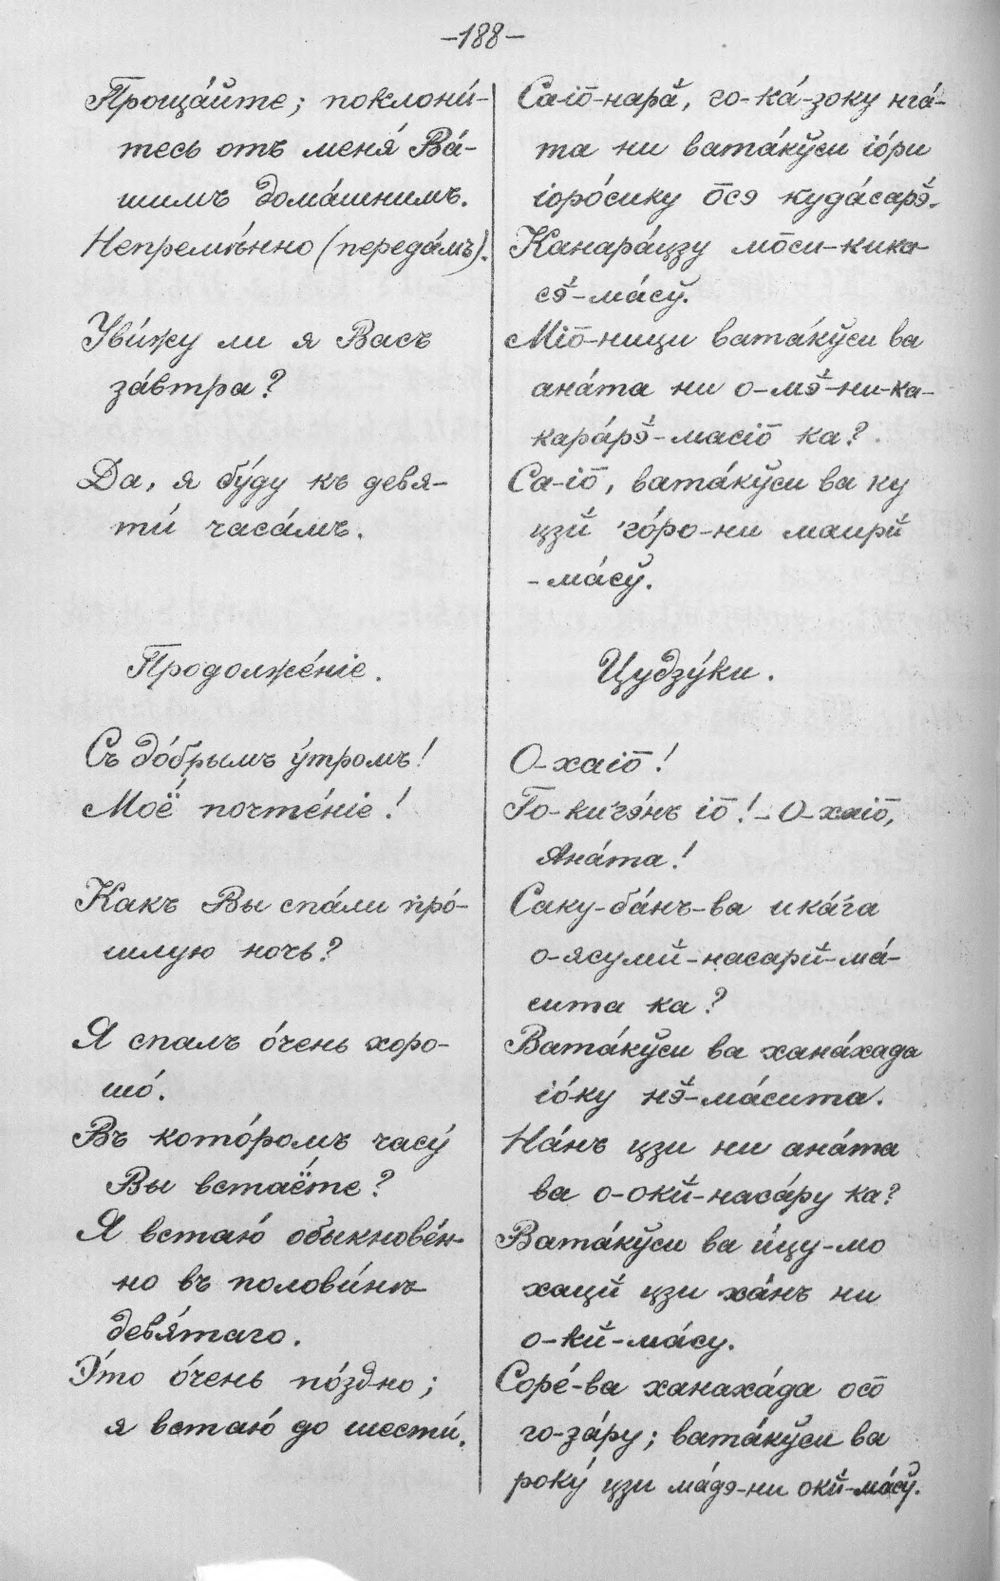 -188-
Проща́йте; поклони́-
тесь отъ меня́ Ва́-
шимъ дома́шнимъ.
Непремѣ́нно (переда́мъ).
Уви́жу ли я Васъ
за́втра?
Да, я бу́ду къ девя-
ти́ часа́мъ.
Продолже́ніе.
Съ до́брымъ у́тромъ!
Моё почте́ніе!
Какъ Вы спа́ли про́-
шлую ночь?
Я спалъ о́чень хоро-
шо́.
Въ кото́ромъ часу́
Вы встаёте?
Я встаю́ обыкнове́н-
но въ полови́нѣ
девя́таго.
Э́то о́чень по́здно;
я встаю́ до шести́.
Са-іо̄-нарӑ, го-ка́-зоку нга́-
та ни вата́кўси іо́ри
іоро́сику о̄сэ куда́сарэ̆.
Канара́цзу мо̄си-кика
сэ̆-ма́сў.
Міо̄-ници вата́кўси ва
ана́та ни о-мэ̆-ни-ка-
кара́рэ̆-масіо̄ ка?
Са-іо̄, вата́кўси ва ку
цзй го́ро-ни маирй
-ма́сў.
Цудзу́ки.
О-хаіо̄!
Го-кигэ́нъ іо̄! - О-хаіо̄,
Ана́та!
Саку-ба́нъ-ва ика́га
о-ясумй-насарй-ма́-
сита ка?
Вата́кўси ва хана́хада
іо́ку нэ̆-ма́сита.
На́нъ цзи ни ана́та
ва о-окй-наса́ру ка?
Вата́кўси ва и́цу-мо
хацй цзи ха́нъ ни
о-кй-ма́су.
Соре́-ва ханаха́да осо̄
го-за́ру; вата́кўси ва
року́ цзи ма́дэ-ни окй-ма́сў.